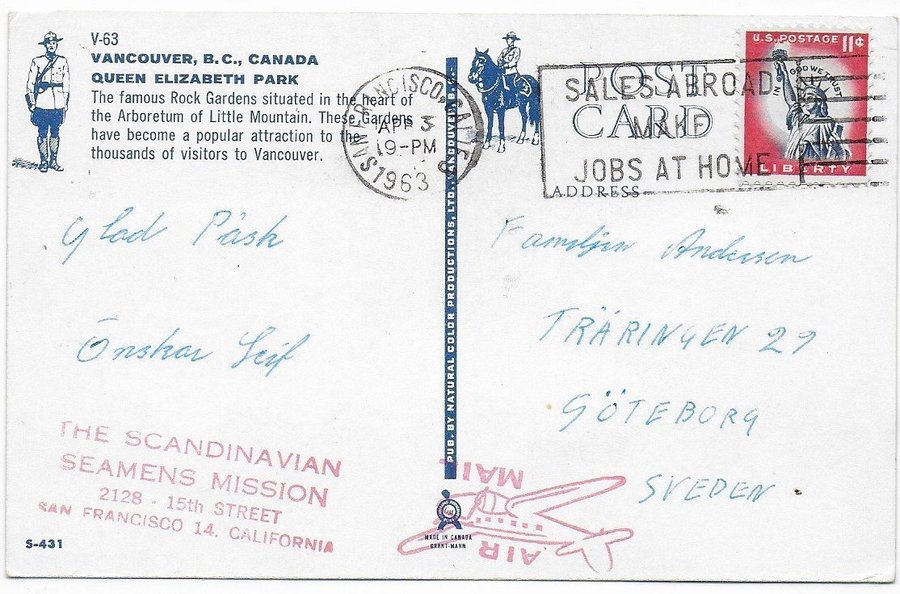 V-63
VANCOUVER, B.C., CANADA
QUEEN ELIZABETH PARK
The famous Rock Gardens situated in the heart of
the Arboretum of Little Mountain. These Gardens
have become a popular attraction to the
thousands of visitors to Vancouver.
SAN FRANCISCO, CALIF.
APR 3
19-PM
1963
POST
CARD
ADDRESS
SALES ABROAD
MAKE
JOBS AT HOME
U.S. POSTAGE 11¢
IN GOD WE TRUST
LIBERTY
Glad Påsk
Önskar Leif.
THE SCANDINAVIAN
SEAMENS MISSION
2128 - 15th STREET
SAN FRANCISCO 14, CALIFORNIA
S-431
PUB. BY NATURAL COLOR PRODUCTIONS, LTD., VANCOUVER, B.C.
MADE IN CANADA
GRANT-MANN
Familjen Andersen
TRÄRINGEN 29
GÖTEBORG
SVEDEN
AIR
MAIL